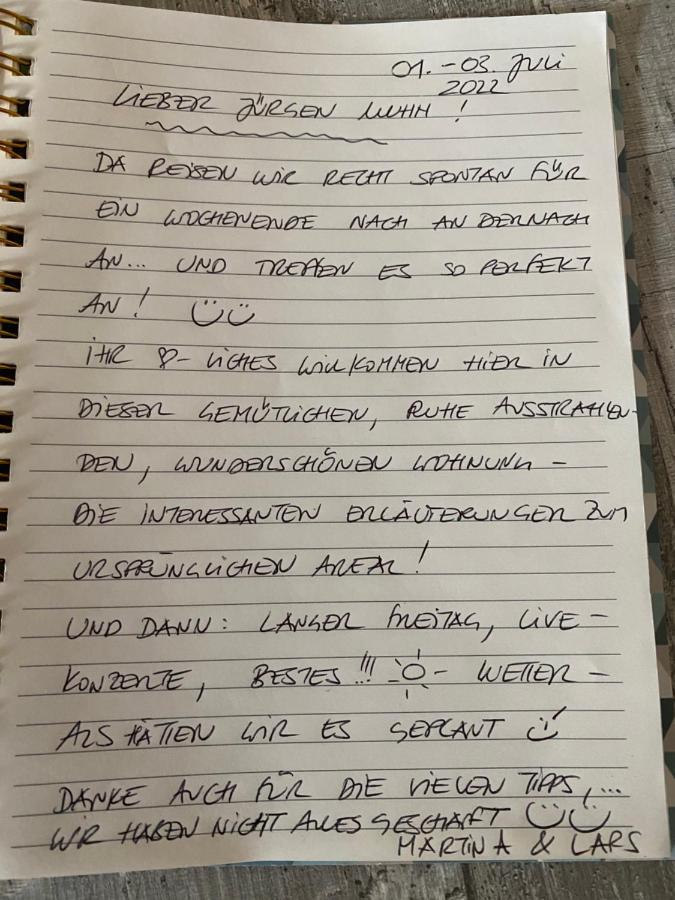 01. – 03. Juli
2022
LIEBER JÜRGEN MUHM !
DA REISEN WIR RECHT SPONTAN FÜR
EIN WOCHENENDE NACH ANDERNACH
AN... UND TREFFEN ES SO PERFEKT
AN !
IHR ♡-LICHES WILLKOMMEN HIER IN
DIESER GEMÜTLICHEN, RUHE AUSSTRAHLEN-
DEN, WUNDERSCHÖNEN WOHNUNG –
DIE INTERESSANTEN ERLÄUTERUNGEN ZUM
URSPRÜNGLICHEN AREAL !
UND DANN : LANGER FREITAG, LIVE –
KONZERTE, BESTES !!! ☼ – WETTER –
ALS HÄTTEN WIR ES GEPLANT
DANKE AUCH FÜR DIE VIELEN TIPPS,...
WIR HABEN NICHT ALLES GESCHAFFT
MARTINA & LARS